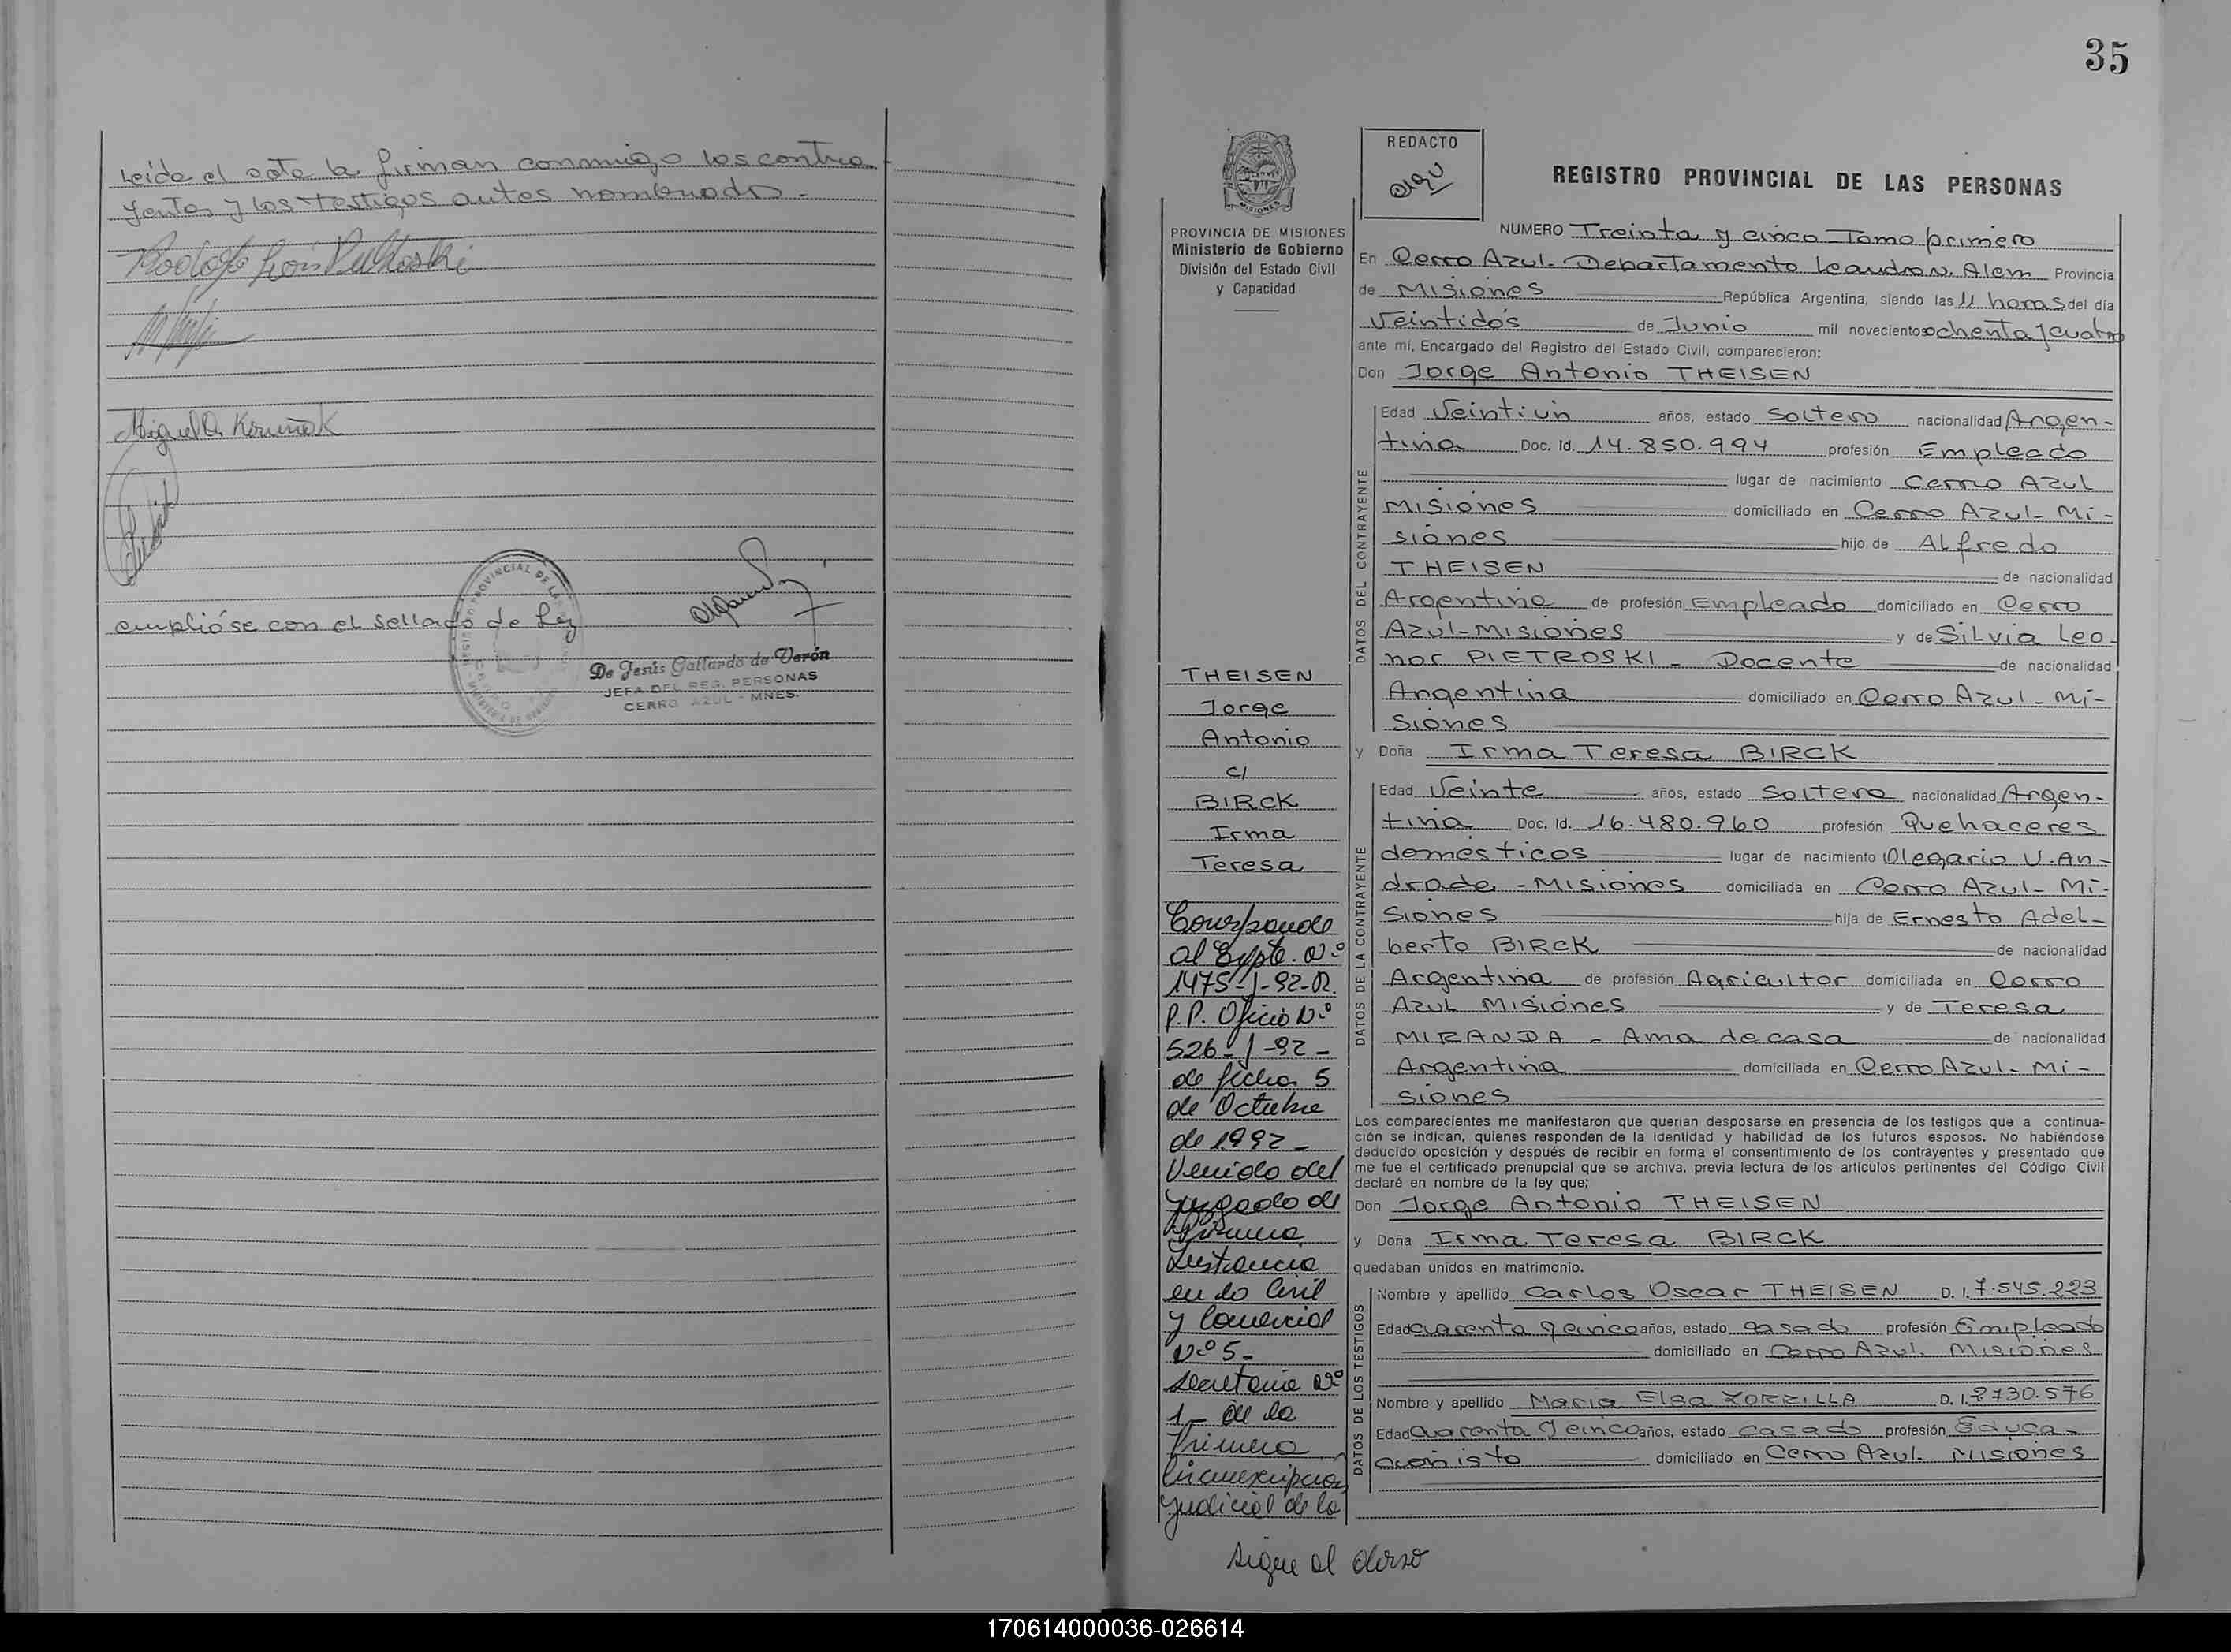 Leída el acta la firman conmigo los contra
yentes y los testigos antes nombrados.-
Rodolfo León
Miguel A.
cumplióse con el sellado de Ley
De Jesús Gallardo de Verón
JEFA DEL REG. PERSONAS
CERRO AZUL - MNES.
35
PROVINCIA DE MISIONES
Ministerio de Gobierno
División del Estado Civil
y Capacidad
REDACTO
REGISTRO PROVINCIAL DE LAS PERSONAS
NUMERO Treinta y cinco - Tomo primero
En Cerro Azul - Departamento Leandro N. Alem Provincia
de Misiones República Argentina, siendo las 11 horas del día
Veintidós de Junio mil novecientos ochenta y cuatro
ante mí, Encargado del Registro del Estado Civil, comparecieron:
Don Jorge Antonio THEISEN
DATOS DEL CONTRAYENTE
Edad Veintiun años, estado soltero nacionalidad Argen-
tina Doc. Id. 14.850.994 profesión Empleado
lugar de nacimiento Cerro Azul
Misiones domiciliado en Cerro Azul - Mi-
siones hijo de Alfredo
THEISEN de nacionalidad
Argentina de profesión Empleado domiciliado en Cerro
Azul - Misiones y de Silvia Leo-
nor PIETROSKI - Docente de nacionalidad
Argentina domiciliado en Cerro Azul - Mi-
siones
y Doña Irma Teresa BIRCK
DATOS DE LA CONTRAYENTE
Edad Veinte años, estado Soltera nacionalidad Argen-
tina Doc. Id. 16.480.960 profesión Quehaceres
domésticos lugar de nacimiento Olegario V. An-
drade - Misiones domiciliada en Cerro Azul - Mi-
siones hija de Ernesto Adel-
berto BIRCK de nacionalidad
Argentina de profesión Agricultor domiciliada en Cerro
Azul Misiones y de Teresa
MIRANDA - Ama de casa de nacionalidad
Argentina domiciliada en Cerro Azul - Mi-
siones
Los comparecientes me manifestaron que querían desposarse en presencia de los testigos que a continua-
ción se indican, quienes responden de la identidad y habilidad de los futuros esposos. No habiéndose
deducido oposición y después de recibir en forma el consentimiento de los contrayentes y presentado que
me fue el certificado prenupcial que se archiva, previa lectura de los artículos pertinentes del Código Civil
declaré en nombre de la ley que;
Don Jorge Antonio THEISEN
y Doña Irma Teresa BIRCK
quedaban unidos en matrimonio.
DATOS DE LOS TESTIGOS
Nombre y apellido Carlos Oscar THEISEN D. I. 7.545.223
Edad cuarenta y cinco años, estado casado profesión Empleado
domiciliado en Cerro Azul. Misiones
Nombre y apellido Maria Elsa ZORZILLA D. I. 2.730.576
Edad Cuarenta y cinco años, estado casada profesión Educa-
cionista domiciliado en Cerro Azul. Misiones
THEISEN
Jorge
Antonio
c/
BIRCK
Irma
Teresa
Corresponde
al Expte. Nº
1475-J-92-R.
P.P. Oficio Nº
526-J-92-
de fecha 5
de Octubre
de 1992-
Venido del
juzgado de
Primera
Instancia
en lo Civil
y Comercial
Nº 5-
Secretaria Nº
1- de la
Primera
Circunscripción
Judicial de la
Sigue al dorso
170614000036-026614